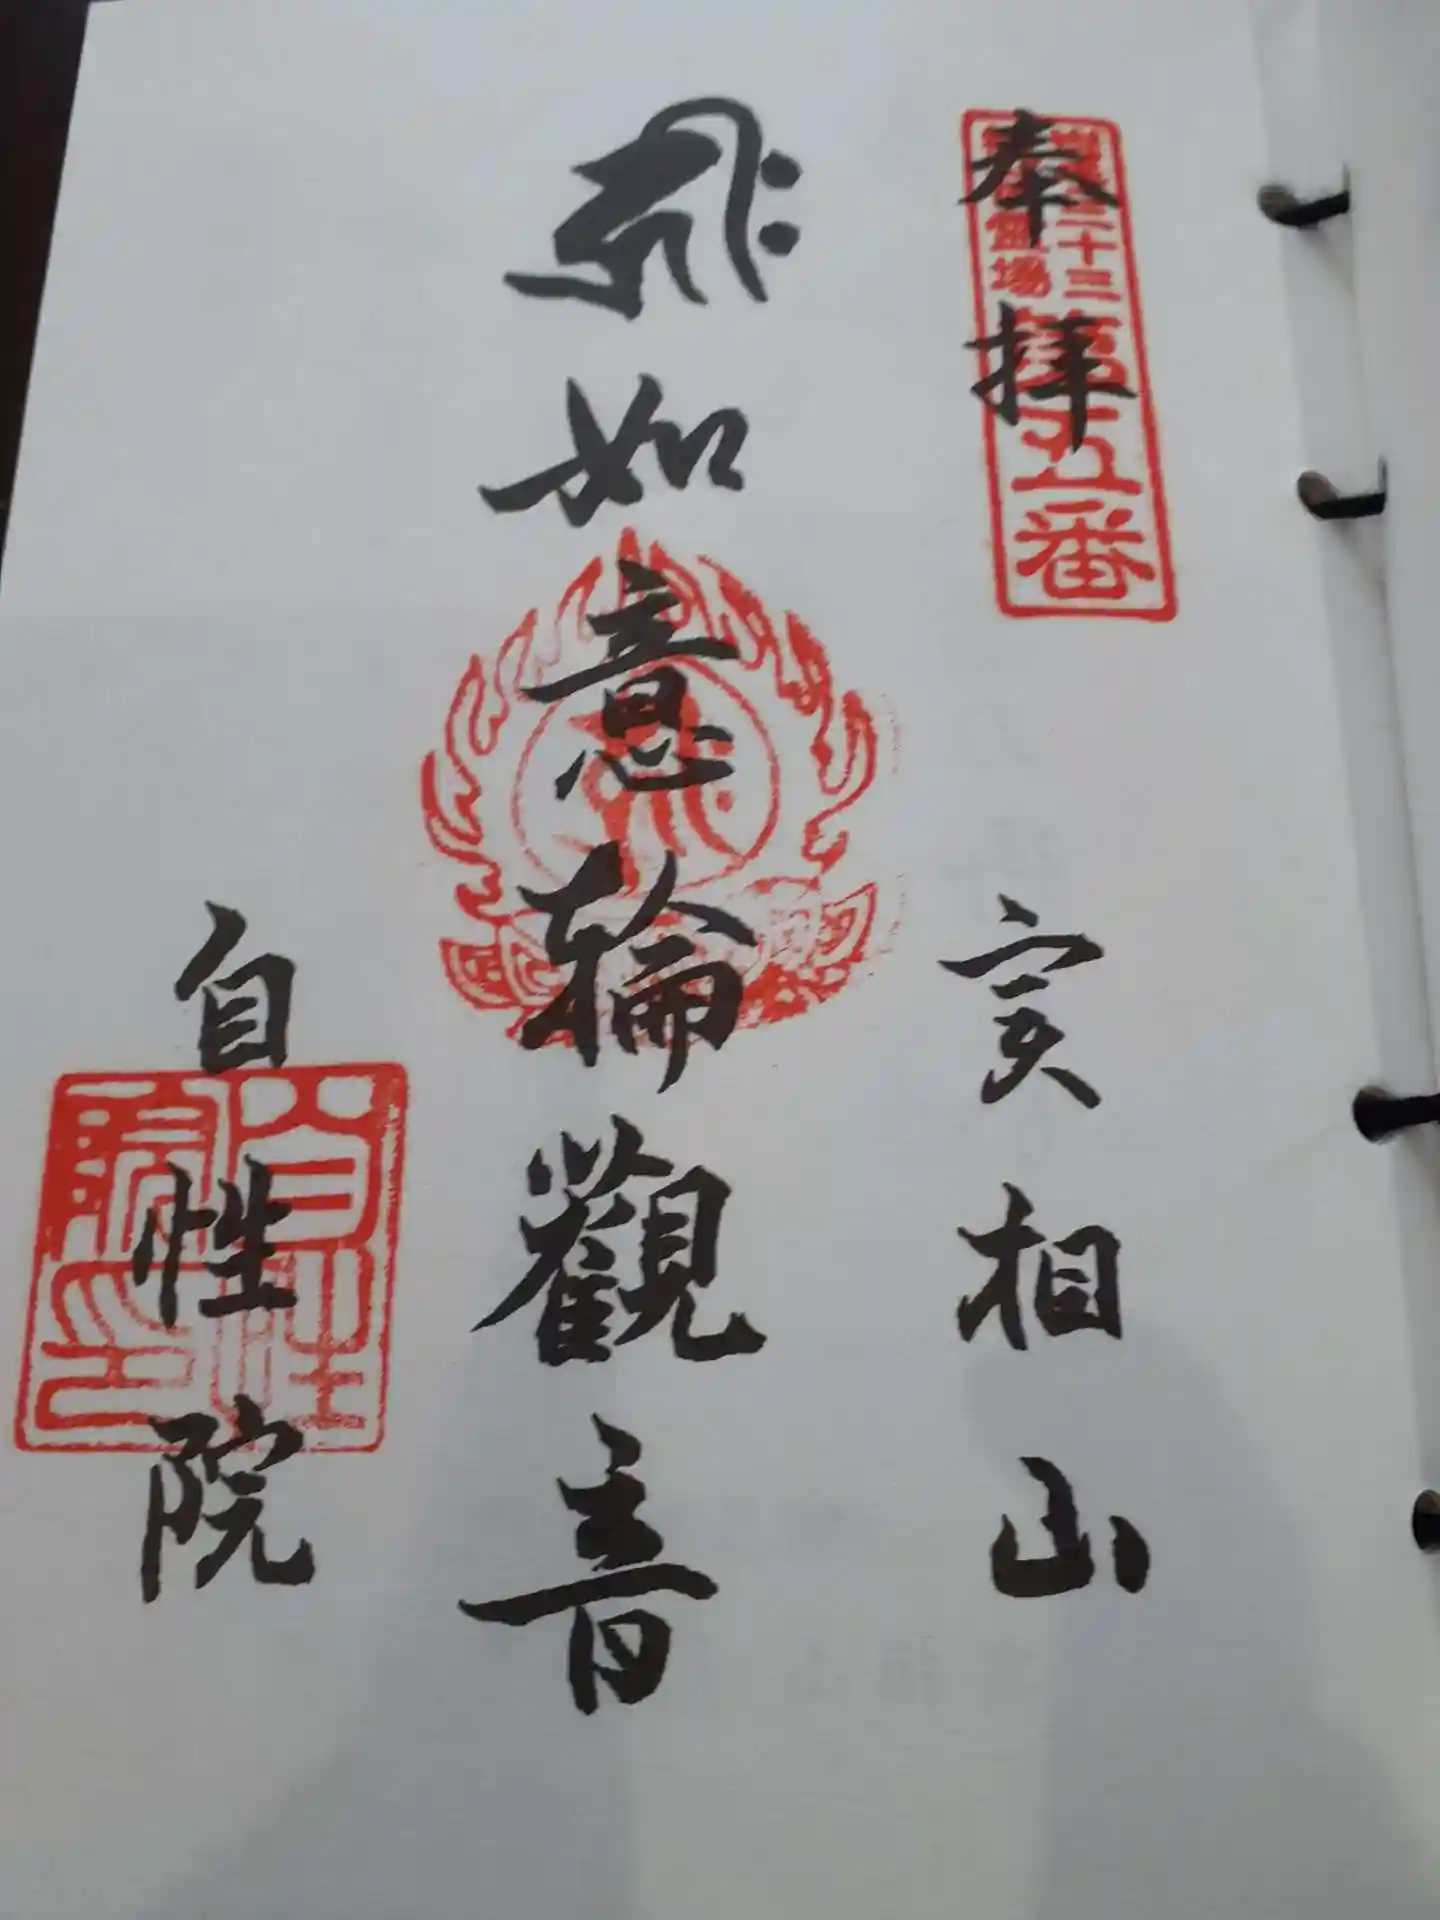 奉拝
三十三
霊場
第五番
実相山
如意輪觀音
自性院
自性
院印